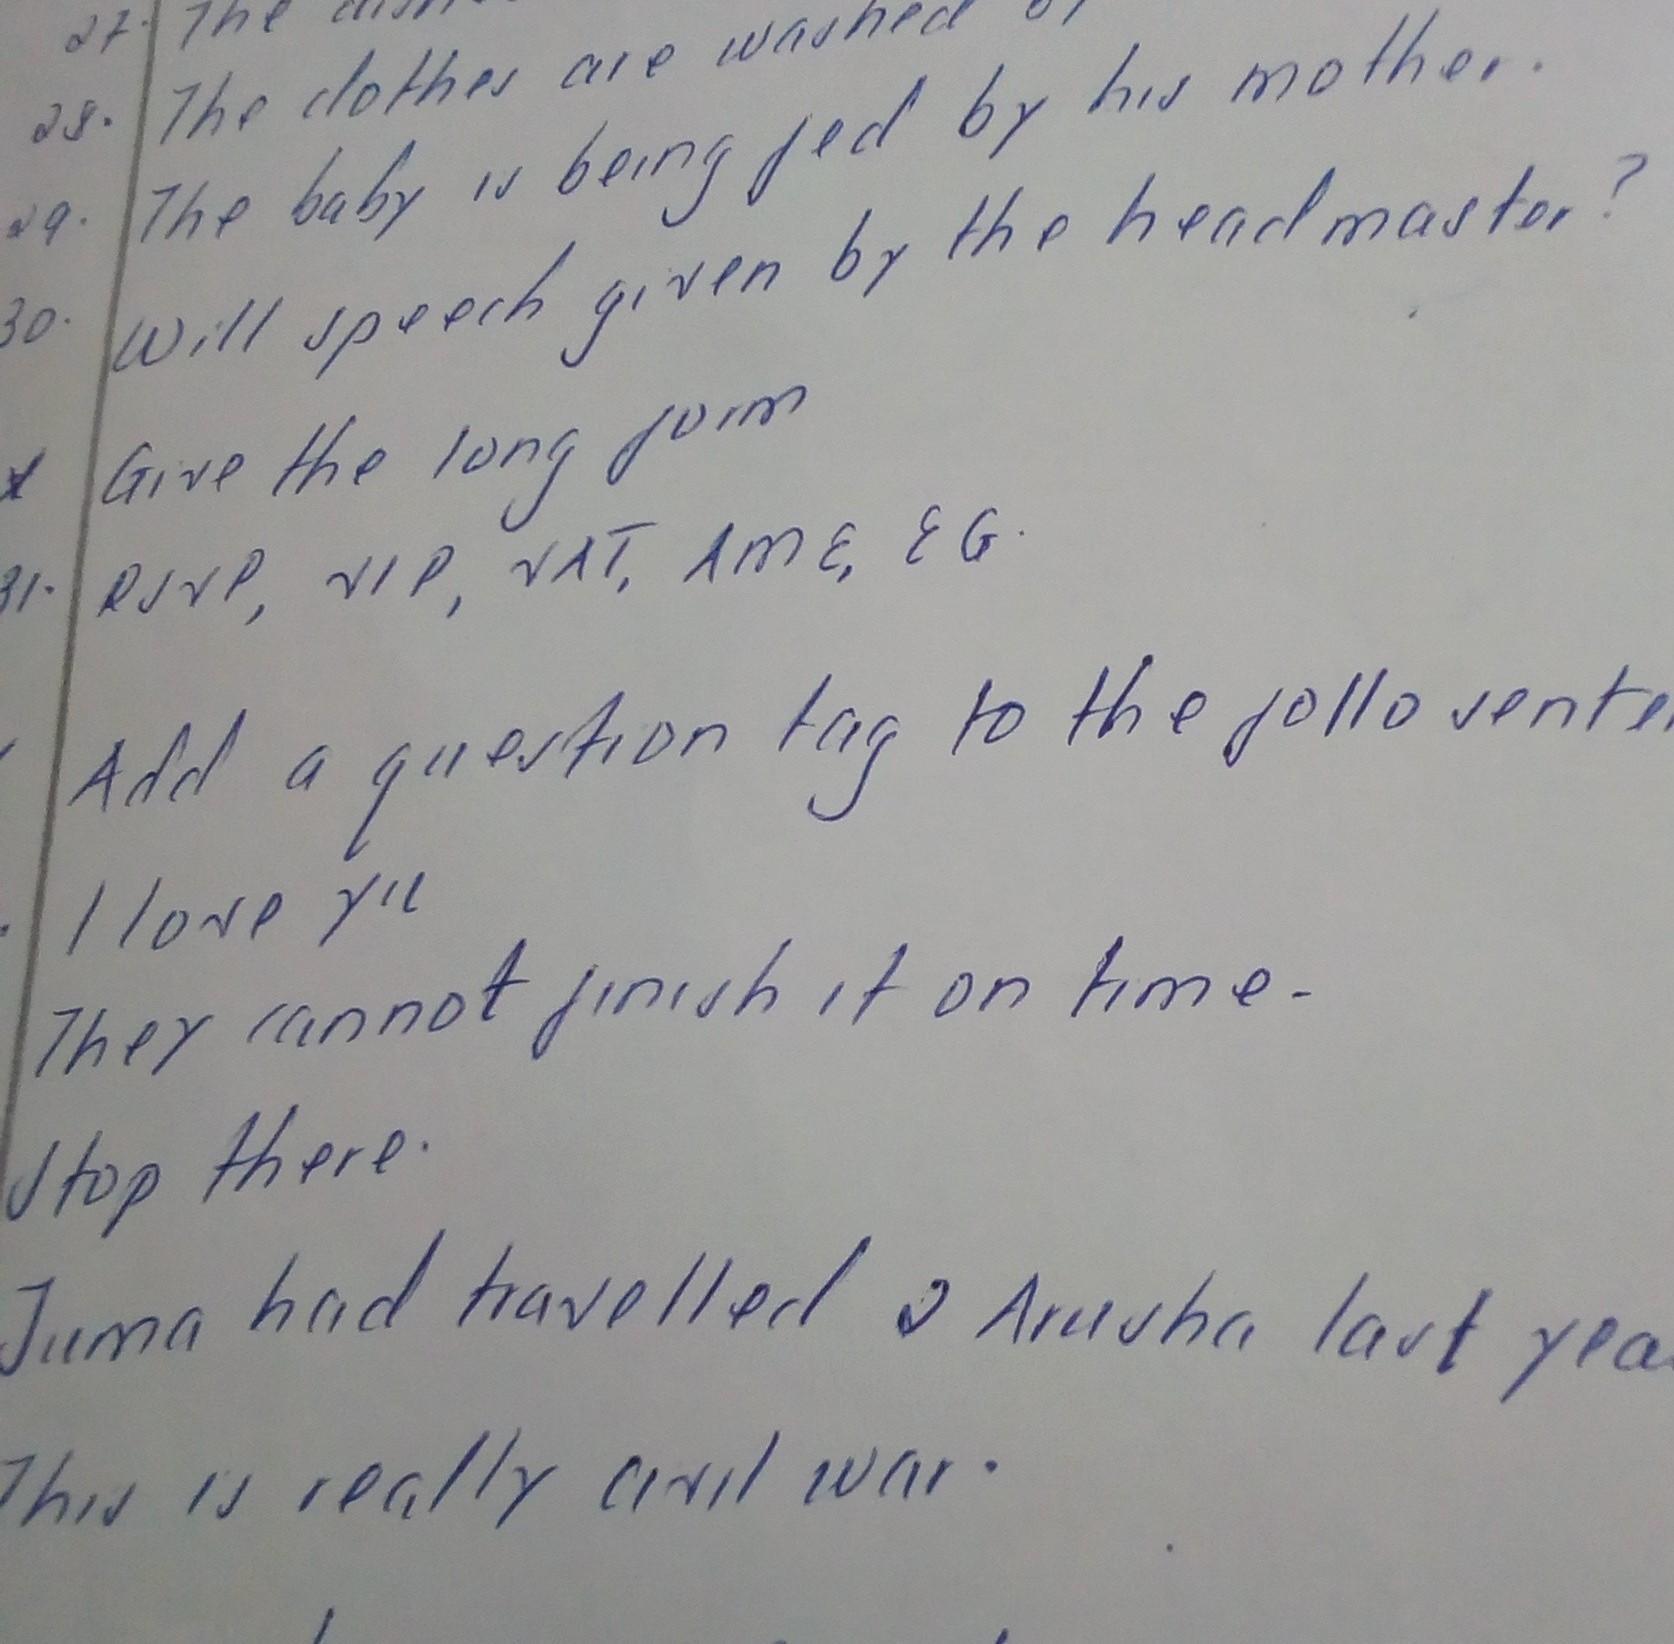 27. The
28. The clothes are washed
29. The baby is being fed by his mother.
30. Will speech given by the headmaster?
Give the long form
31. RSVP, VIP, VAT, AME, EG.
Add a question tag to the follo
I love yu
They cannot finish it on time.
Stop there.
Juma had travelled Arusha last
This is really civil war.